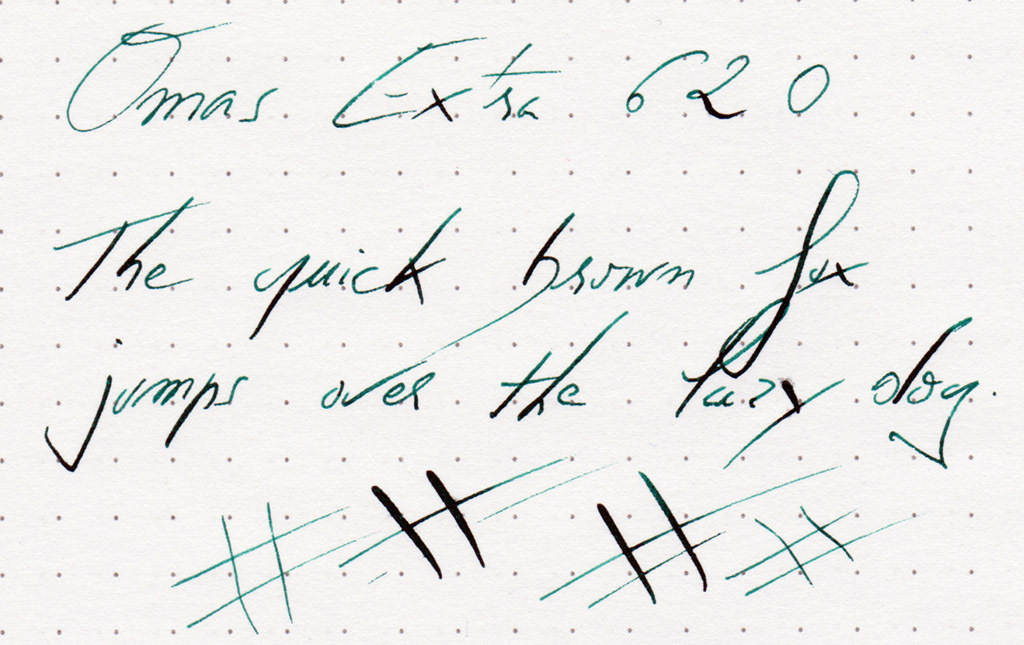 Omas Extra 620
The quick brown fox
jumps over the lazy dog.
# # # #